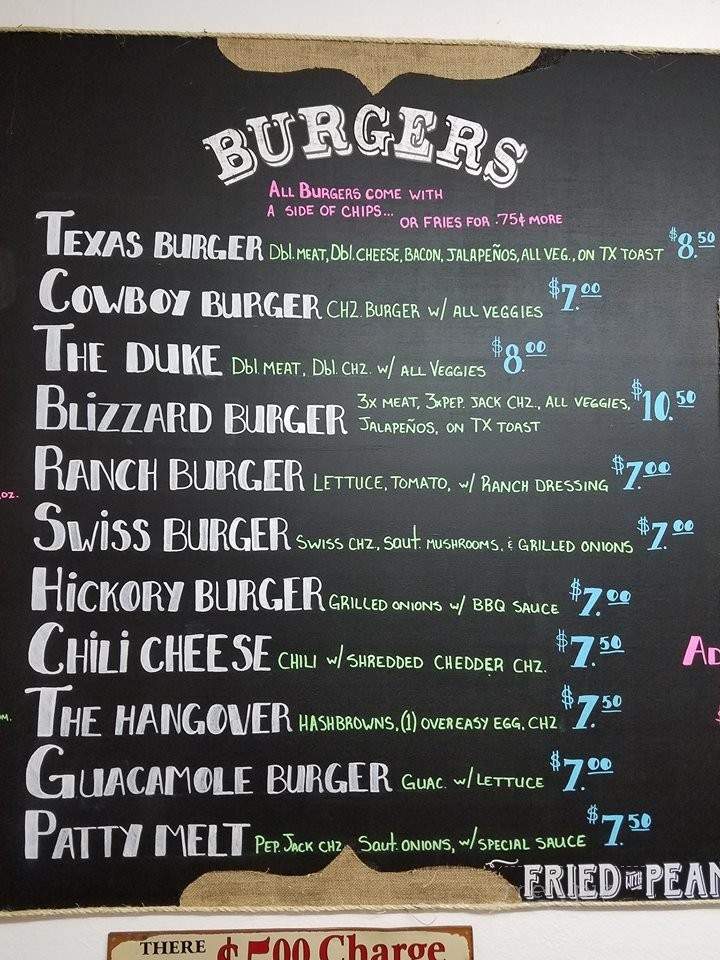 BURGERS
ALL BURGERS COME WITH
A SIDE OF CHIPS... OR FRIES FOR .75¢ MORE
TEXAS BURGER Dbl. MEAT, Dbl. CHEESE, BACON, JALAPEÑOS, ALL VEG., ON TX TOAST $8.50
COWBOY BURGER CHZ. BURGER W/ ALL VEGGIES $7.00
THE DUKE Dbl. MEAT, Dbl. CHZ. W/ ALL VEGGIES $8.00
BLiZZARD BURGER 3X MEAT, 3XPEP. JACK CHZ., ALL VEGGIES, $10.50
JALAPEÑOS, ON TX TOAST
RANCH BURGER LETTUCE, TOMATO, W/ RANCH DRESSING $7.00
OZ.
SWiSS BURGER SWISS CHZ, Saut. MUSHROOMS, & GRILLED ONIONS $7.00
HiCKORY BURGER GRILLED ONIONS W/ BBQ SAUCE $7.00
CHiLi CHEESE CHILI W/SHREDDED CHEDDER CHZ. $7.50
AD
THE HANGOVER HASHBROWNS, (1) OVER EASY EGG, CHZ $7.50
GUACAMOLE BURGER GUAC. W/LETTUCE $7.00
PATTY MELT PEP. JACK CHZ, Saut. ONIONS, W/SPECIAL SAUCE $7.50
FRIED WITH PEAN
THERE $5.00 Charge